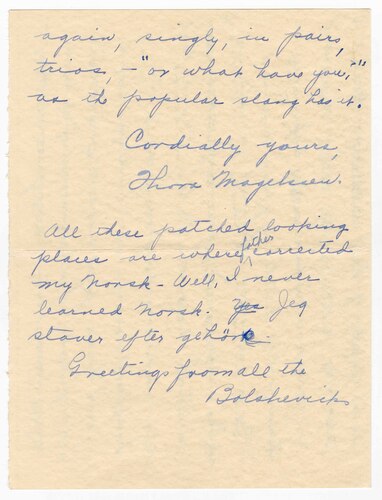 again, singly, in pairs,
trios, – "or what have you,"
as the popular slang has it.
Cordially yours,
Thora Magelssen.
All these patched looking
places are where father corrected
my Norsk – Well, I never
learned Norsk. Yes Jeg
staver efter gehör.
Greetings from all the
Bolshevicks